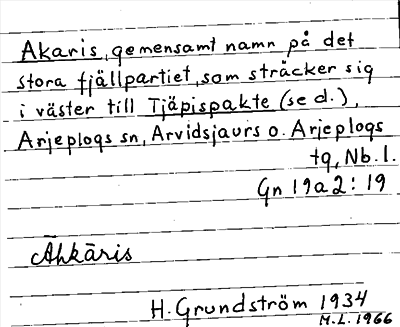 Akaris, gemensamt namn på det
stora fjällpartiet, som sträcker sig
i väster till Tjäpispakte (se d.),
Arjeplogs sn, Arvidsjaurs o. Arjeplogs
tg, Nb. l.
Gn 19a2:19
Āhkāris
H. Grundström 1934
M.L. 1966